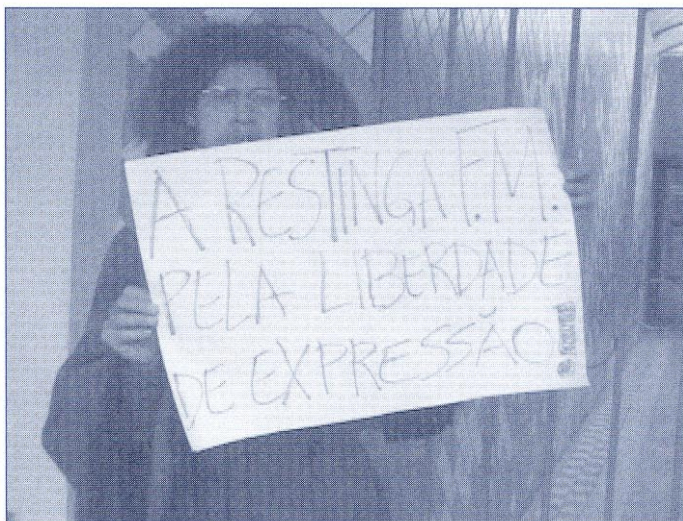 A RESTINGA F.M.
PELA LIBERDADE
DE EXPRESSÃO